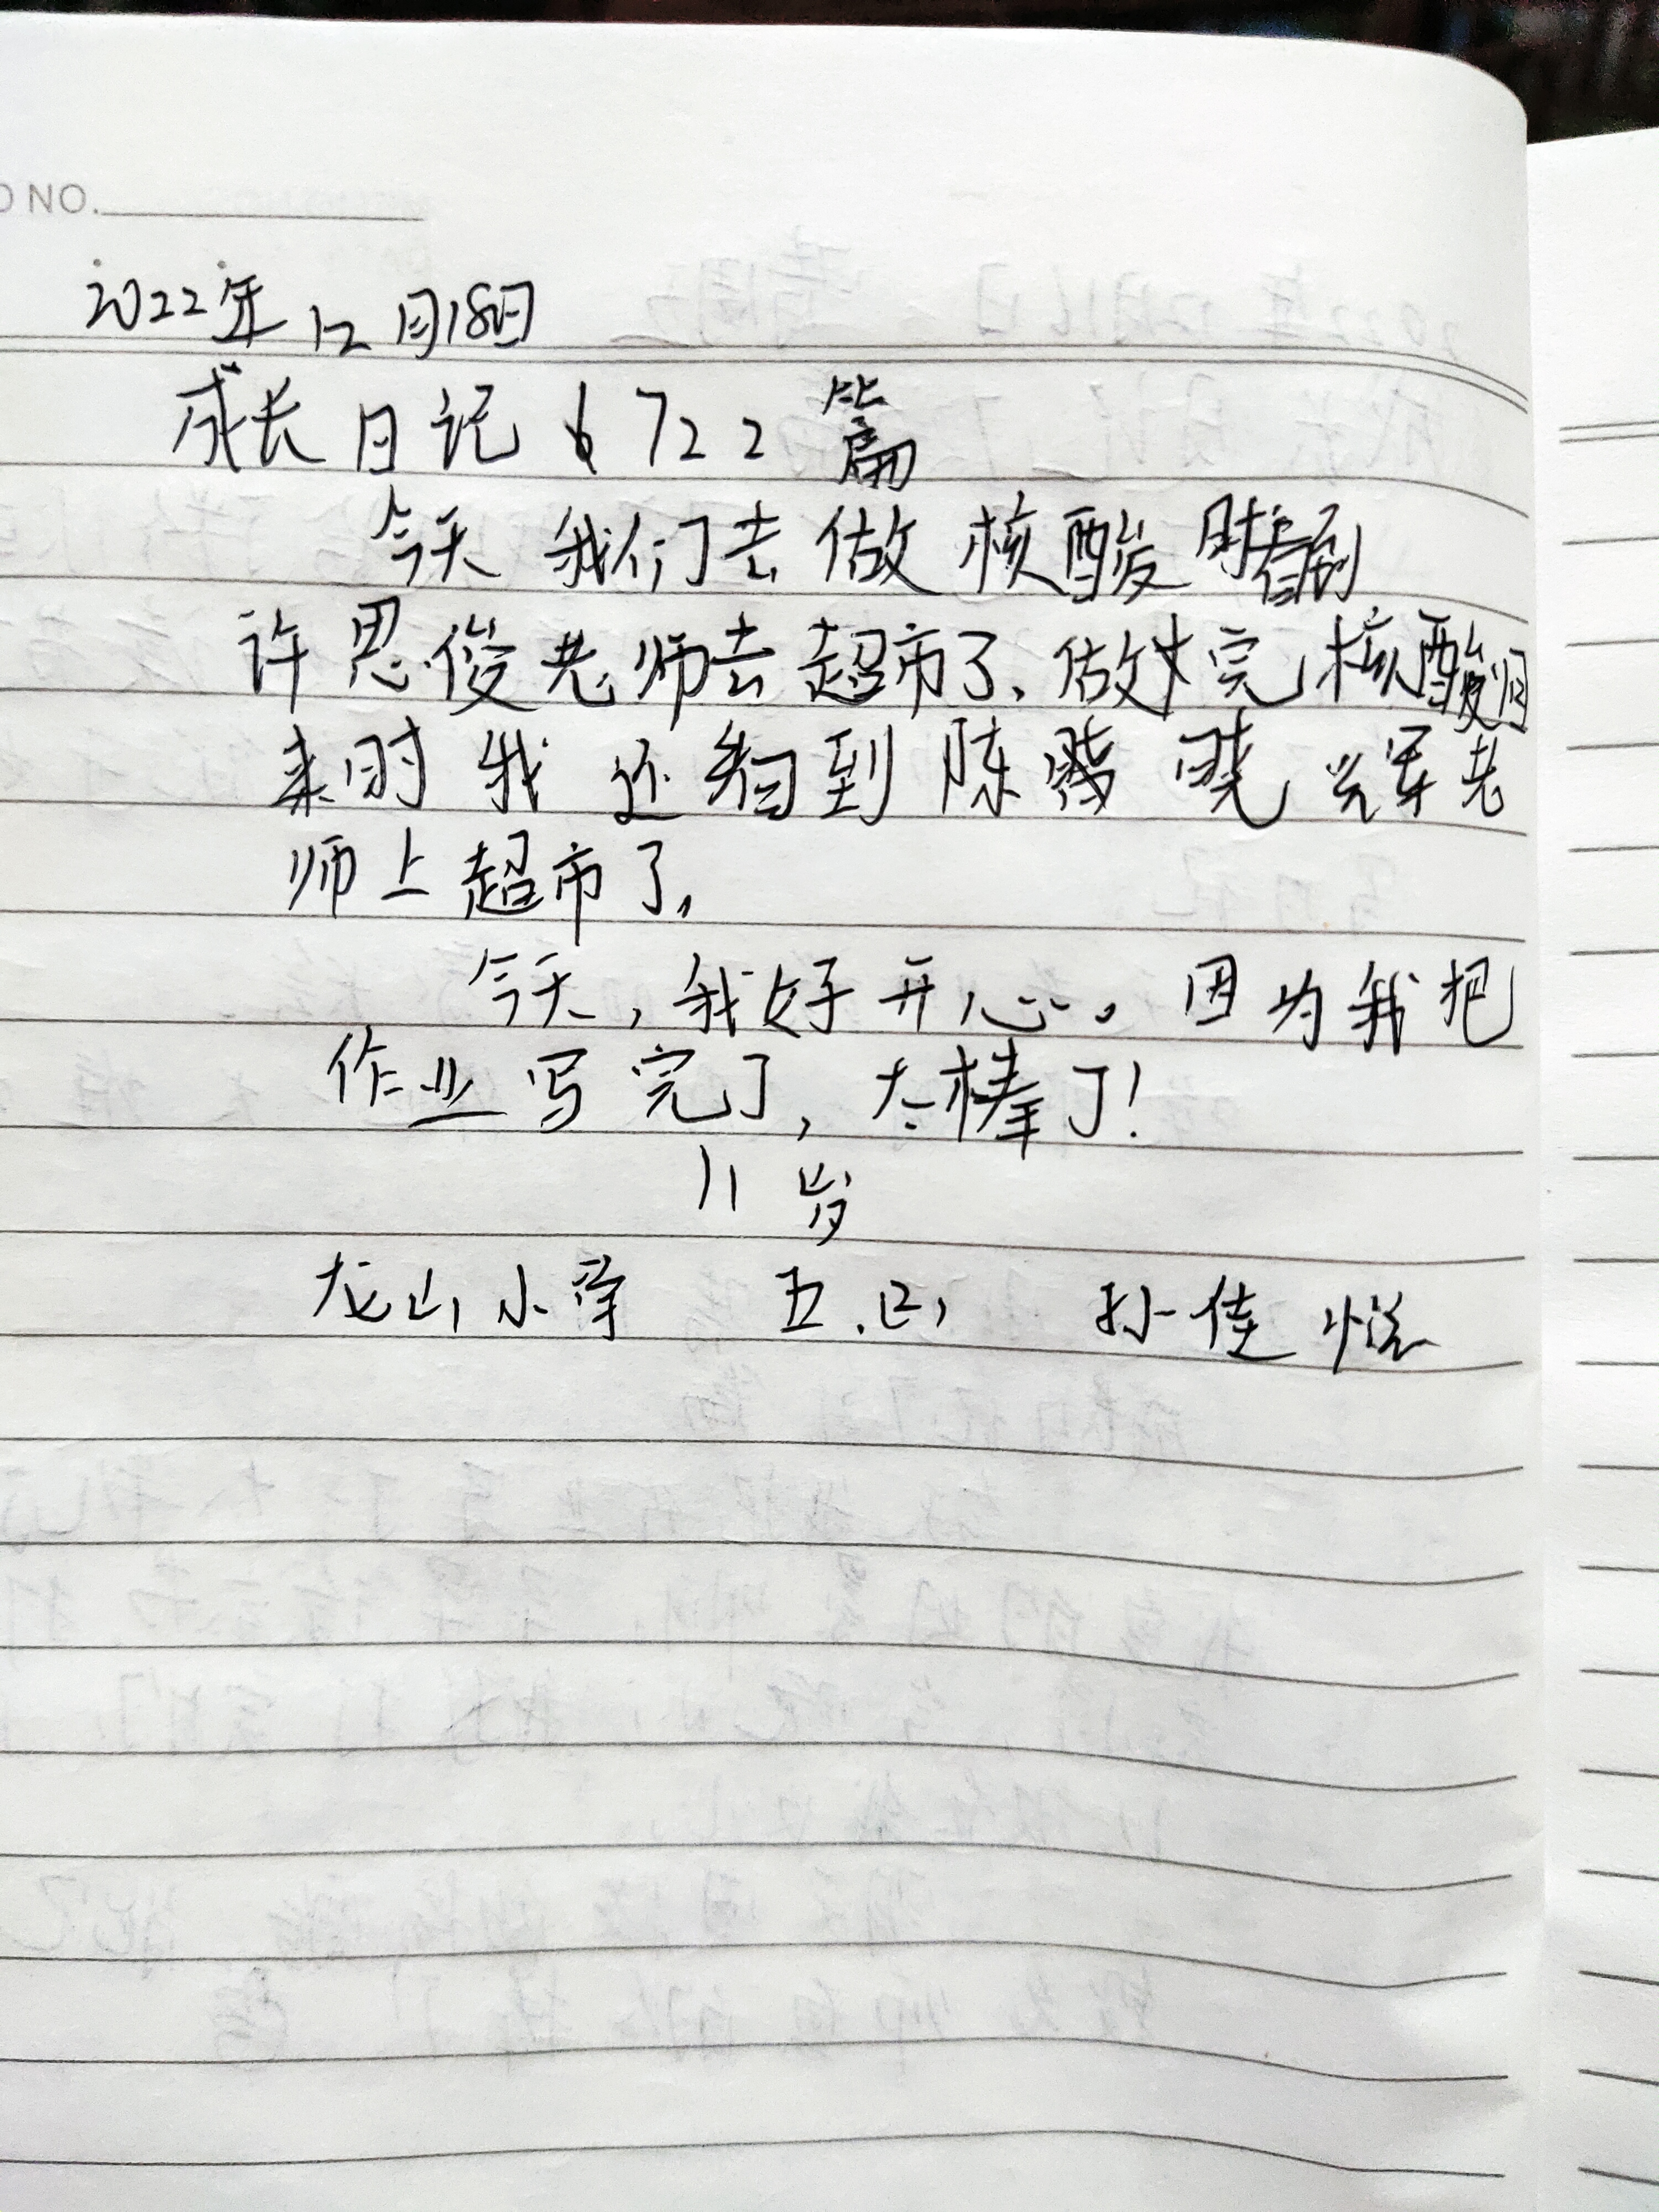 NO.
2022年12月18日
成长日记722篇
今天我们去做核酸时看到
许思俊老师去超市了、做完核酸回
来时我还看到陈晓辉老
师上超市了,
今天,我好开心。因为我把
作业写完了,太棒了!
11岁
龙山小学 五.四 孙佳悦